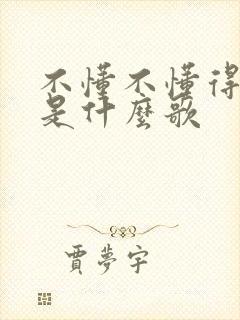 不懂不懂得
是什麼歌
賈夢宇